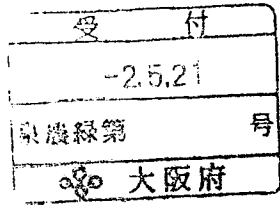 受 付
-2.5.21
泉農緑第 号
大阪府